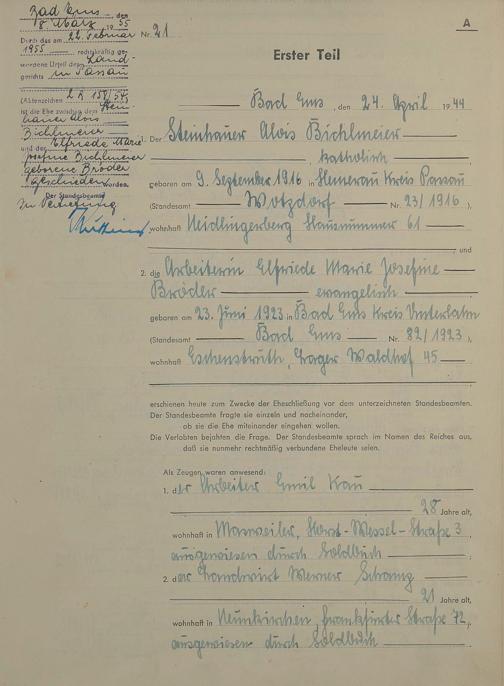 Bad Ems, den
8. März 1955
Durch das am 22. Februar
1955 rechtskräftig ge-
wordene Urteil des Land-
gerichts in Passau
(Aktenzeichen
ist die Ehe zwischen dem Stein-
hauer Alois
Bichlmeier
und der Elfriede Marie
Josefine Bichlmeier
geborene Bröder
geschieden worden.
Der Standesbeamte
In Vertretung
A
Nr. 21
Erster Teil
Bad Ems, den 24. April 1944
1. Der Steinhauer Alois Bichlmeier
katholisch
geboren am 9. September 1916 in Kreis Passau
(Standesamt Wotzdorf Nr. 23/1916),
wohnhaft Neidlingerberg Hausnummer 61
und
2. die Arbeiterin Elfriede Marie Josefine
Bröder evangelisch
geboren am 23. Juni 1923 in Bad Ems Kreis Unterlahn
(Standesamt Bad Ems Nr. 82/1923),
wohnhaft Eschenstruth, Lager Waldhof 45
erschienen heute zum Zwecke der Eheschließung vor dem unterzeichneten Standesbeamten.
Der Standesbeamte fragte sie einzeln und nacheinander,
ob sie die Ehe miteinander eingehen wollen.
Die Verlobten bejahten die Frage. Der Standesbeamte sprach im Namen des Reiches aus,
daß sie nunmehr rechtmäßig verbundene Eheleute seien.
Als Zeugen waren anwesend:
1. der Arbeiter Emil Kau
28 Jahre alt,
wohnhaft in Manweiler, Horst-Wessel-Straße 3
ausgewiesen durch Soldbuch
2. der Landwirt Werner
21 Jahre alt,
wohnhaft in Neunkirchen, Frankfurter Straße 72,
ausgewiesen durch Soldbuch